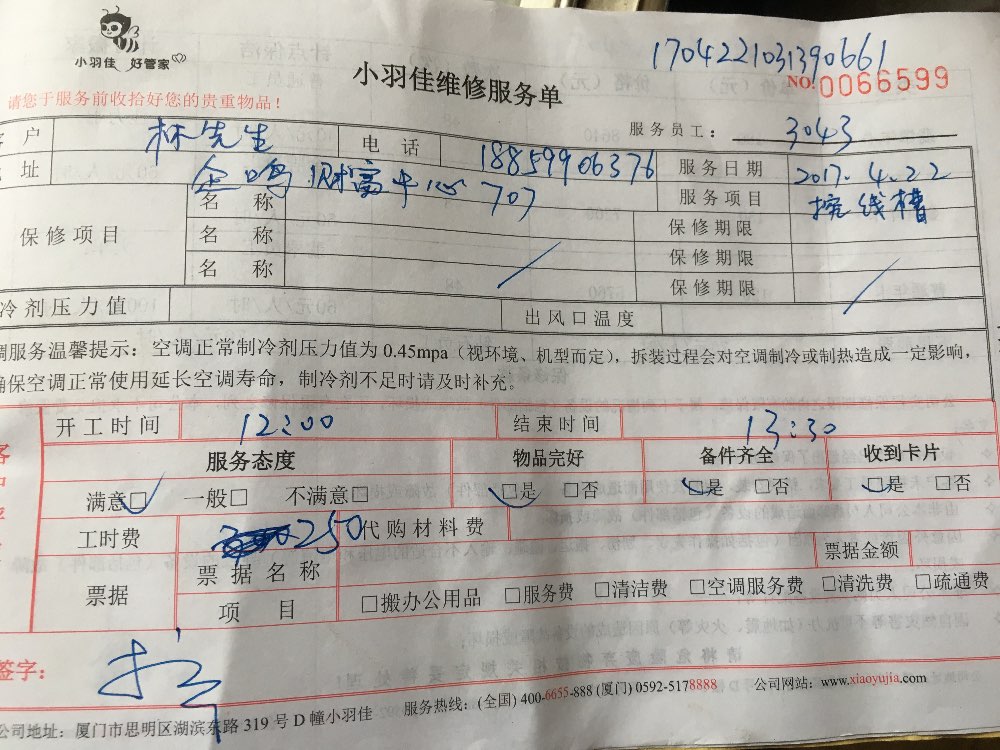 小羽佳 好管家
1704221031390661
小羽佳维修服务单
NO.0066599
请您于服务前收拾好您的贵重物品！
服务员工： 3043
客户 林先生 电话 18859906376 服务日期 2017.4.22
址 金鸣财富中心707 服务项目 挖线槽
保修项目 名称 保修期限
名称 保修期限
名称 保修期限
冷剂压力值 出风口温度
调服务温馨提示：空调正常制冷剂压力值为0.45mpa（视环境、机型而定），拆装过程会对空调制冷或制热造成一定影响，
确保空调正常使用延长空调寿命，制冷剂不足时请及时补充。
开工时间 12:00 结束时间 13:30
服务态度 物品完好 备件齐全 收到卡片
满意□ 一般□ 不满意□ □是 □否 □是 □否 □是 □否
工时费 250 代购材料费
票据 票据名称 票据金额
项目 □搬办公用品 □服务费 □清洁费 □空调服务费 □清洗费 □疏通费
签字：
公司地址：厦门市思明区湖滨东路319号D幢小羽佳 服务热线：(全国) 400-6655-888 (厦门) 0592-5178888 公司网站：www.xiaoyujia.com